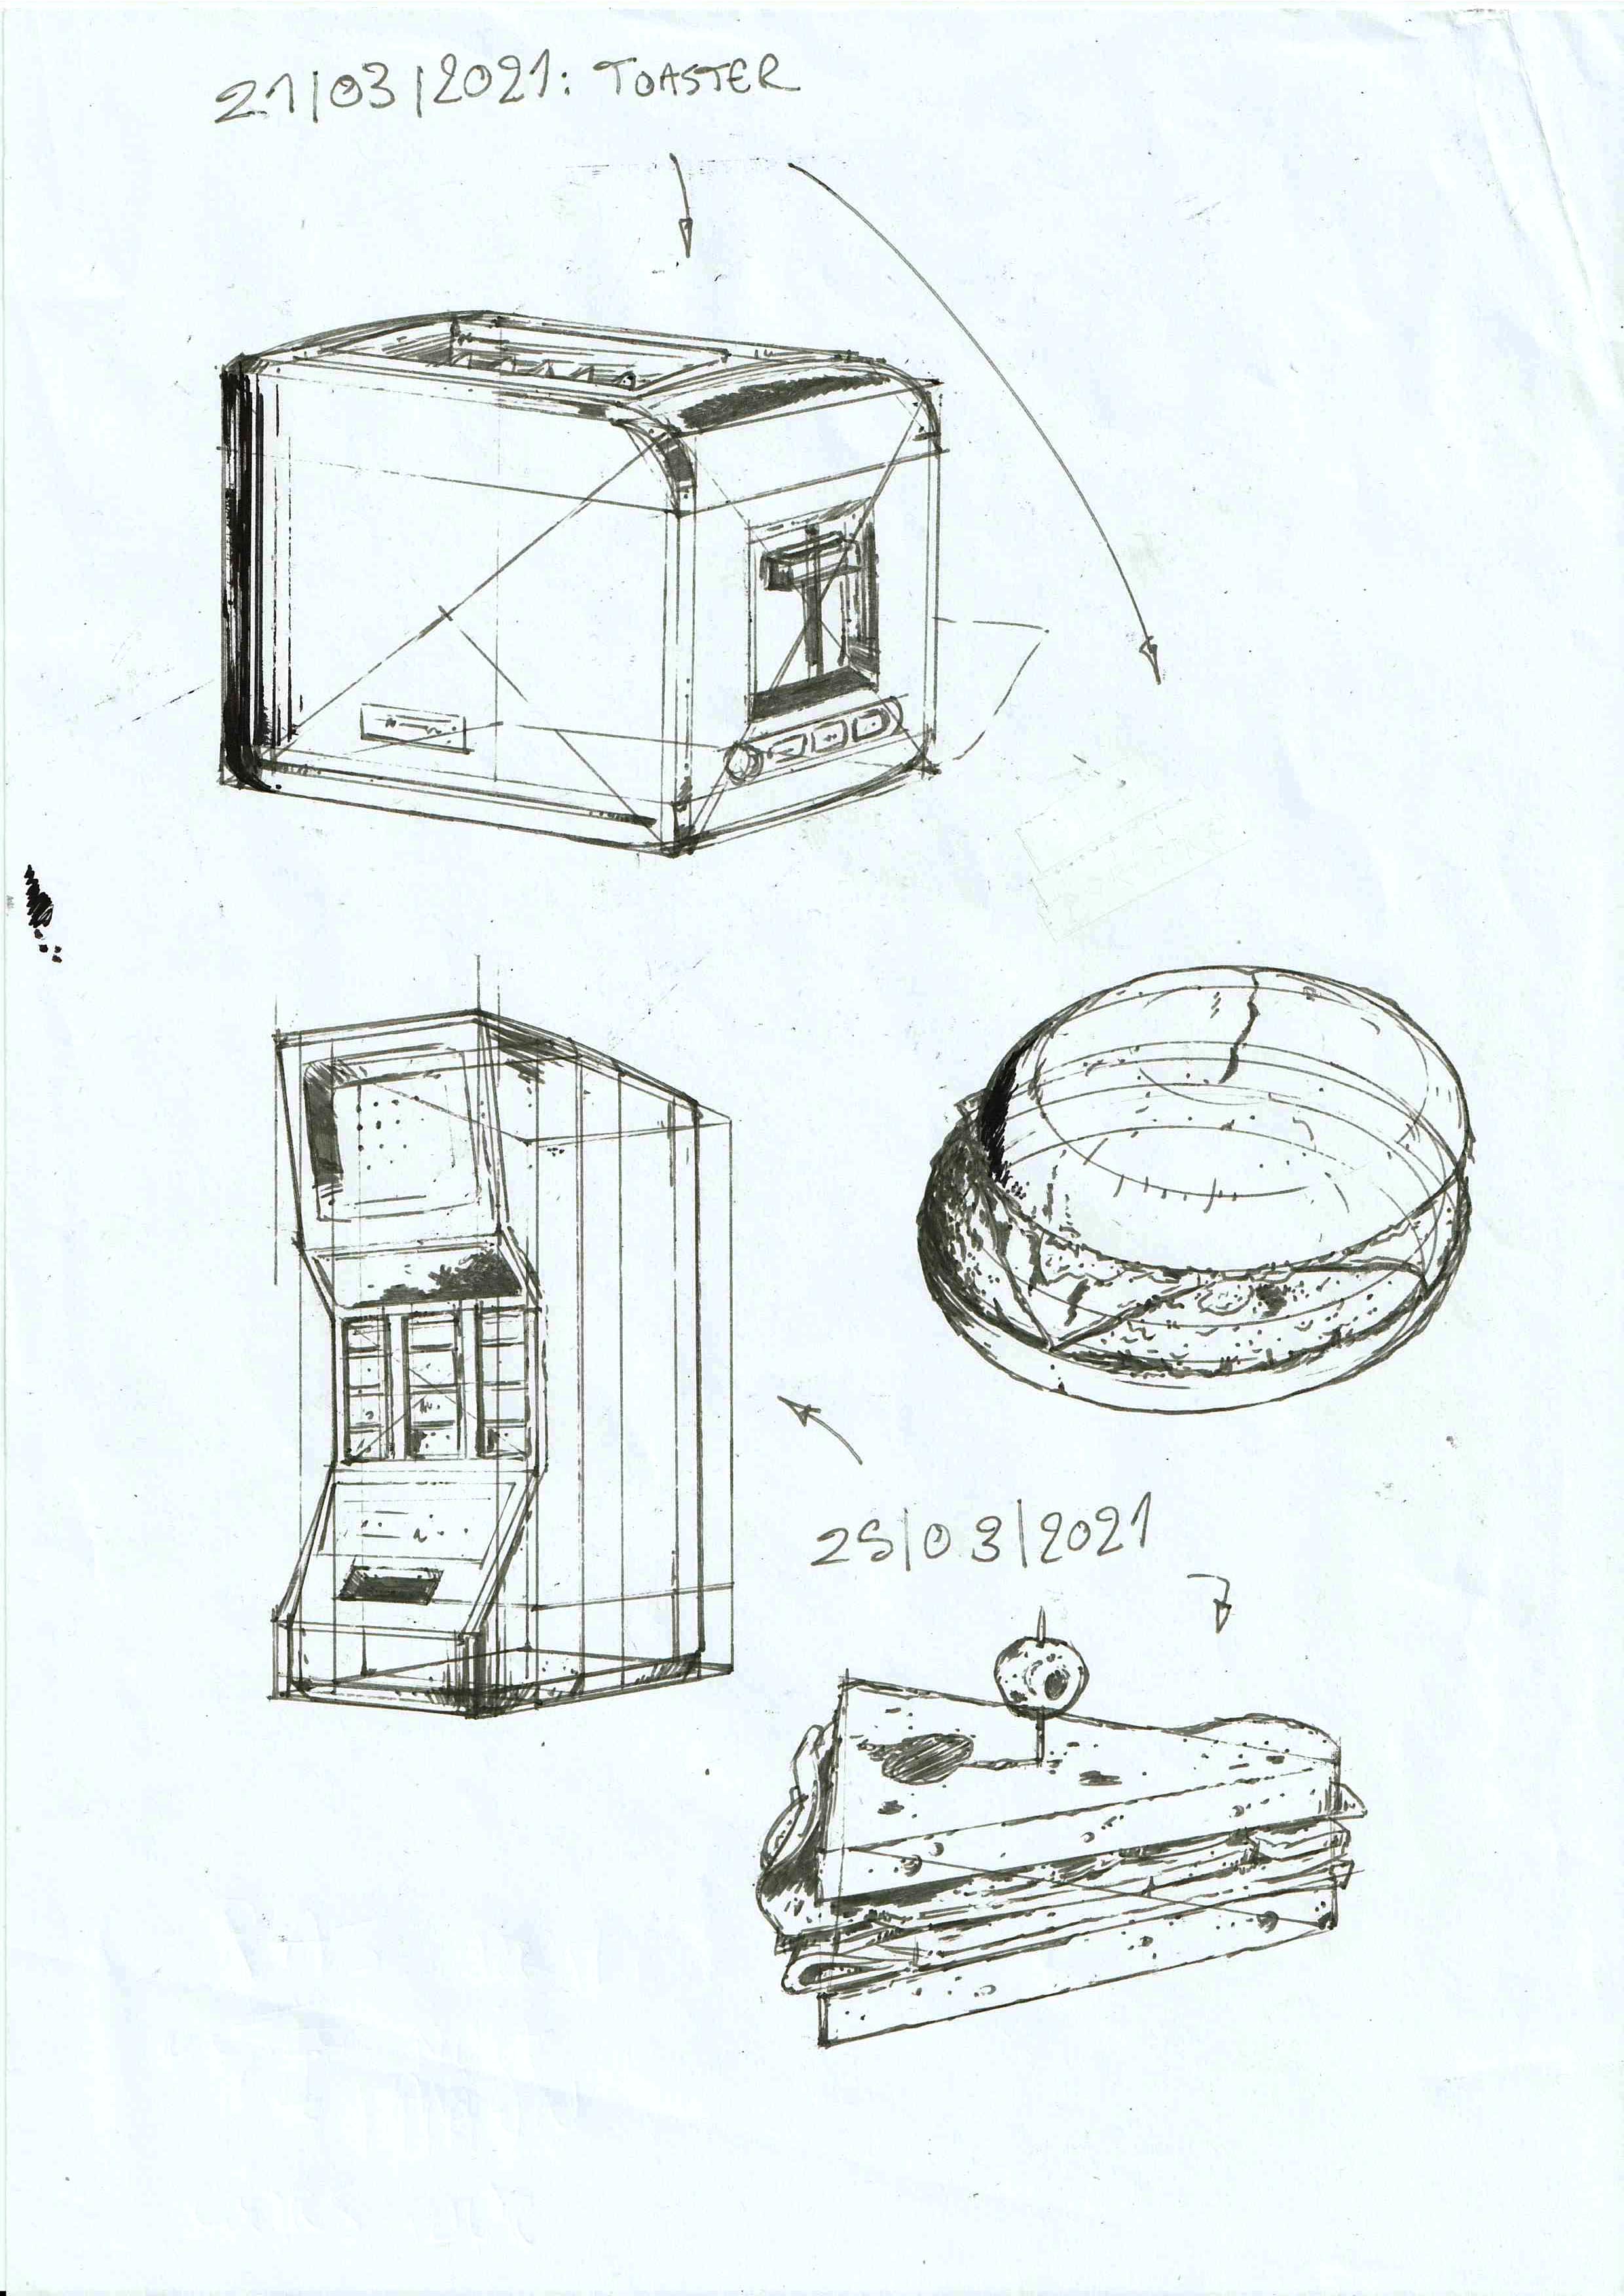 21/03/2021: TOASTER
25/03/2021